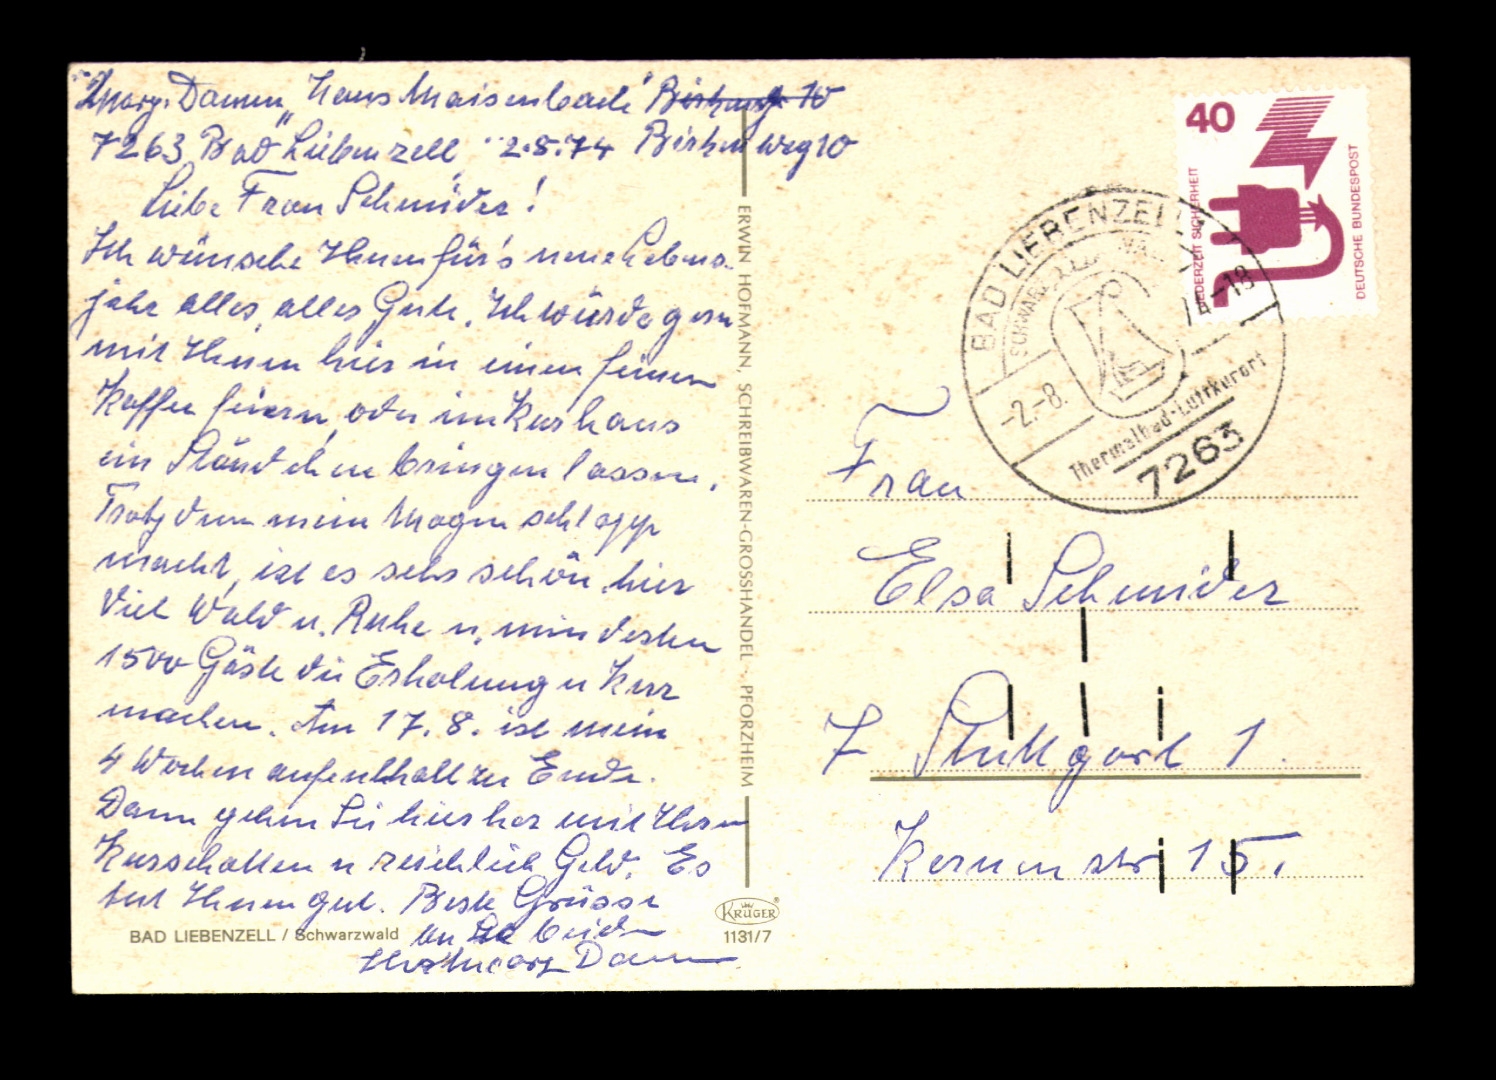 Marg. Damm "Haus Maisenbach"
7263 Bad Liebenzell 2.8.74 Birkenweg 10
Liebe Frau Schmider!
Ich wünsche Ihnen für's neue Lebens-
jahr alles, alles Gute. Ich würde gern
mit Ihnen hier in einem feinen
Kaffee feiern, oder im Kurhaus
ein Ständchen bringen lassen.
Trotzdem mein Magen schlapp
macht, ist es sehr schön hier
Viel Wald u. Ruhe u. mindesten
1500 Gäste die Erholung u Kur
machen. Am 17.8. ist mein
4 Wochenaufenthalt zu Ende.
Dann gehen Sie hierher mit Ihrem
Kurschatten u reichlich Geld. Es
tut Ihnen gut. Beste Grüsse
an Sie beide
Ihre Marg Damm
BAD LIEBENZELL / Schwarzwald
ERWIN HOFMANN, SCHREIBWAREN-GROSSHANDEL · PFORZHEIM
KRÜGER®
1131/7
40
JEDERZEIT SICHERHEIT
DEUTSCHE BUNDESPOST
BAD LIEBENZELL
-2.-8.
-18
Thermalbad-Luftkurort
7263
Frau
Elsa Schmider
7 Stuttgart 1.
Kernerstr 15.